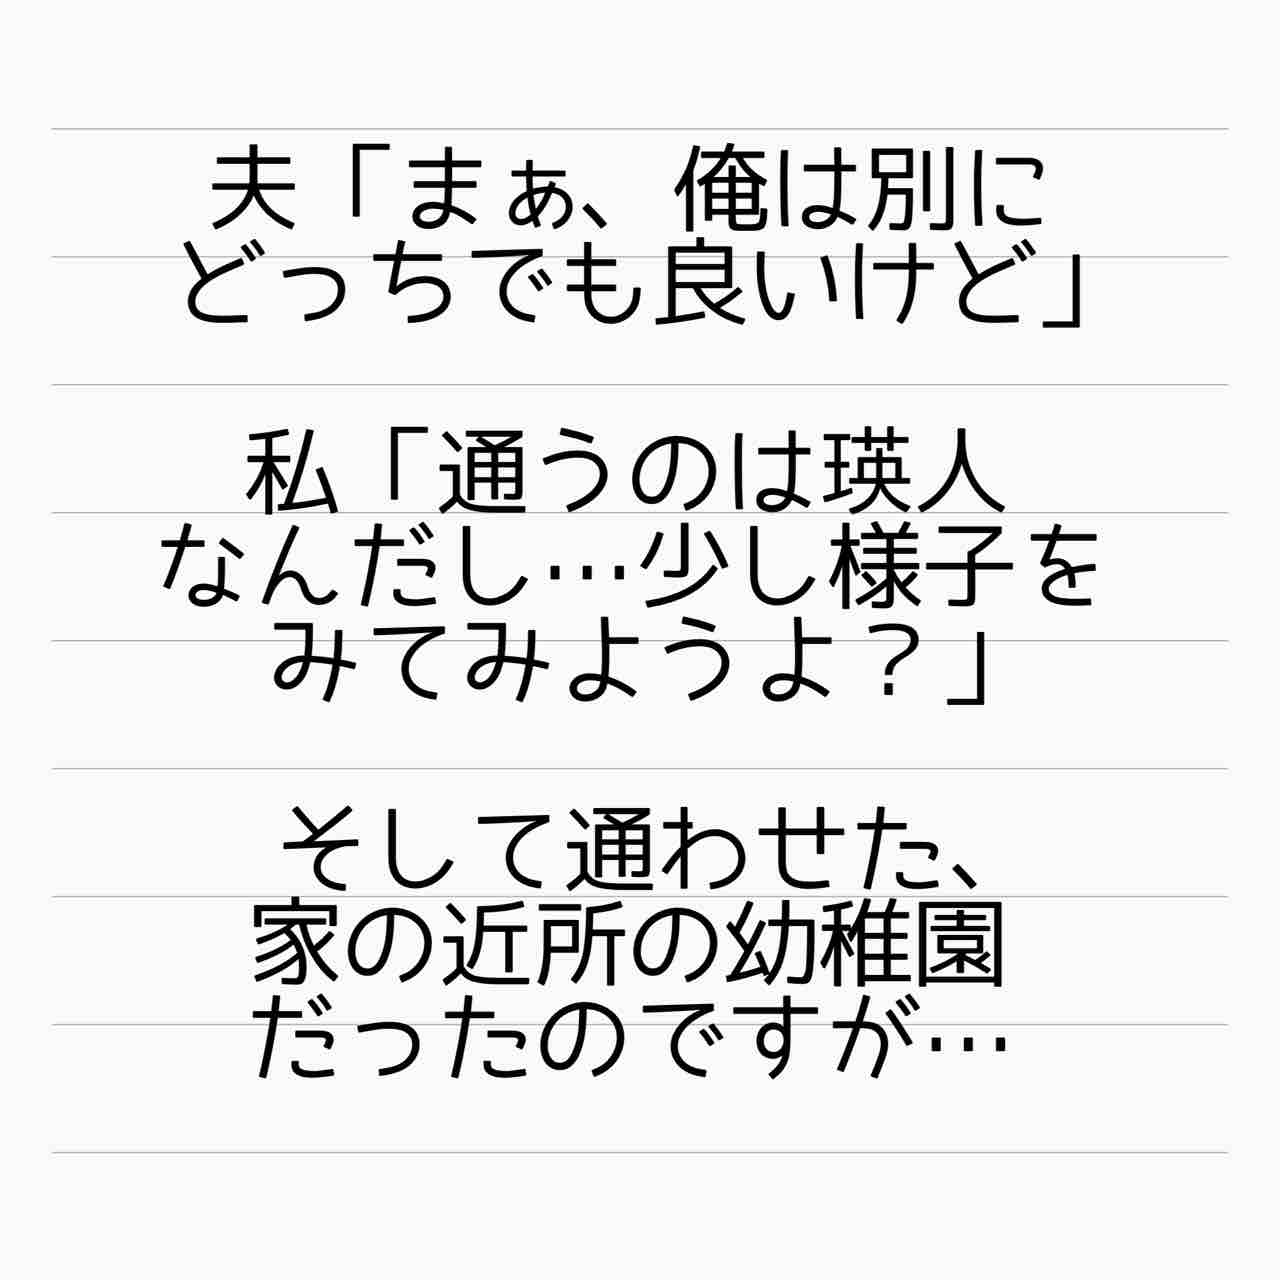 夫「まぁ、俺は別に
どっちでも良いけど」
私「通うのは瑛人
なんだし…少し様子を
みてみようよ？」
そして通わせた、
家の近所の幼稚園
だったのですが…